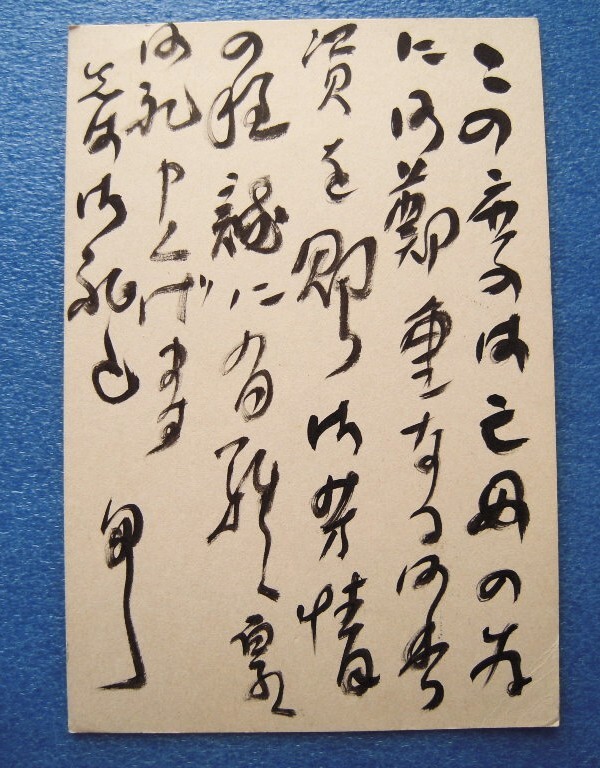 この度は亡母の為
に御鄭重なる御弔
資を賜り御芳情
の程誠に有難く
御礼申上げます
先は御礼迄